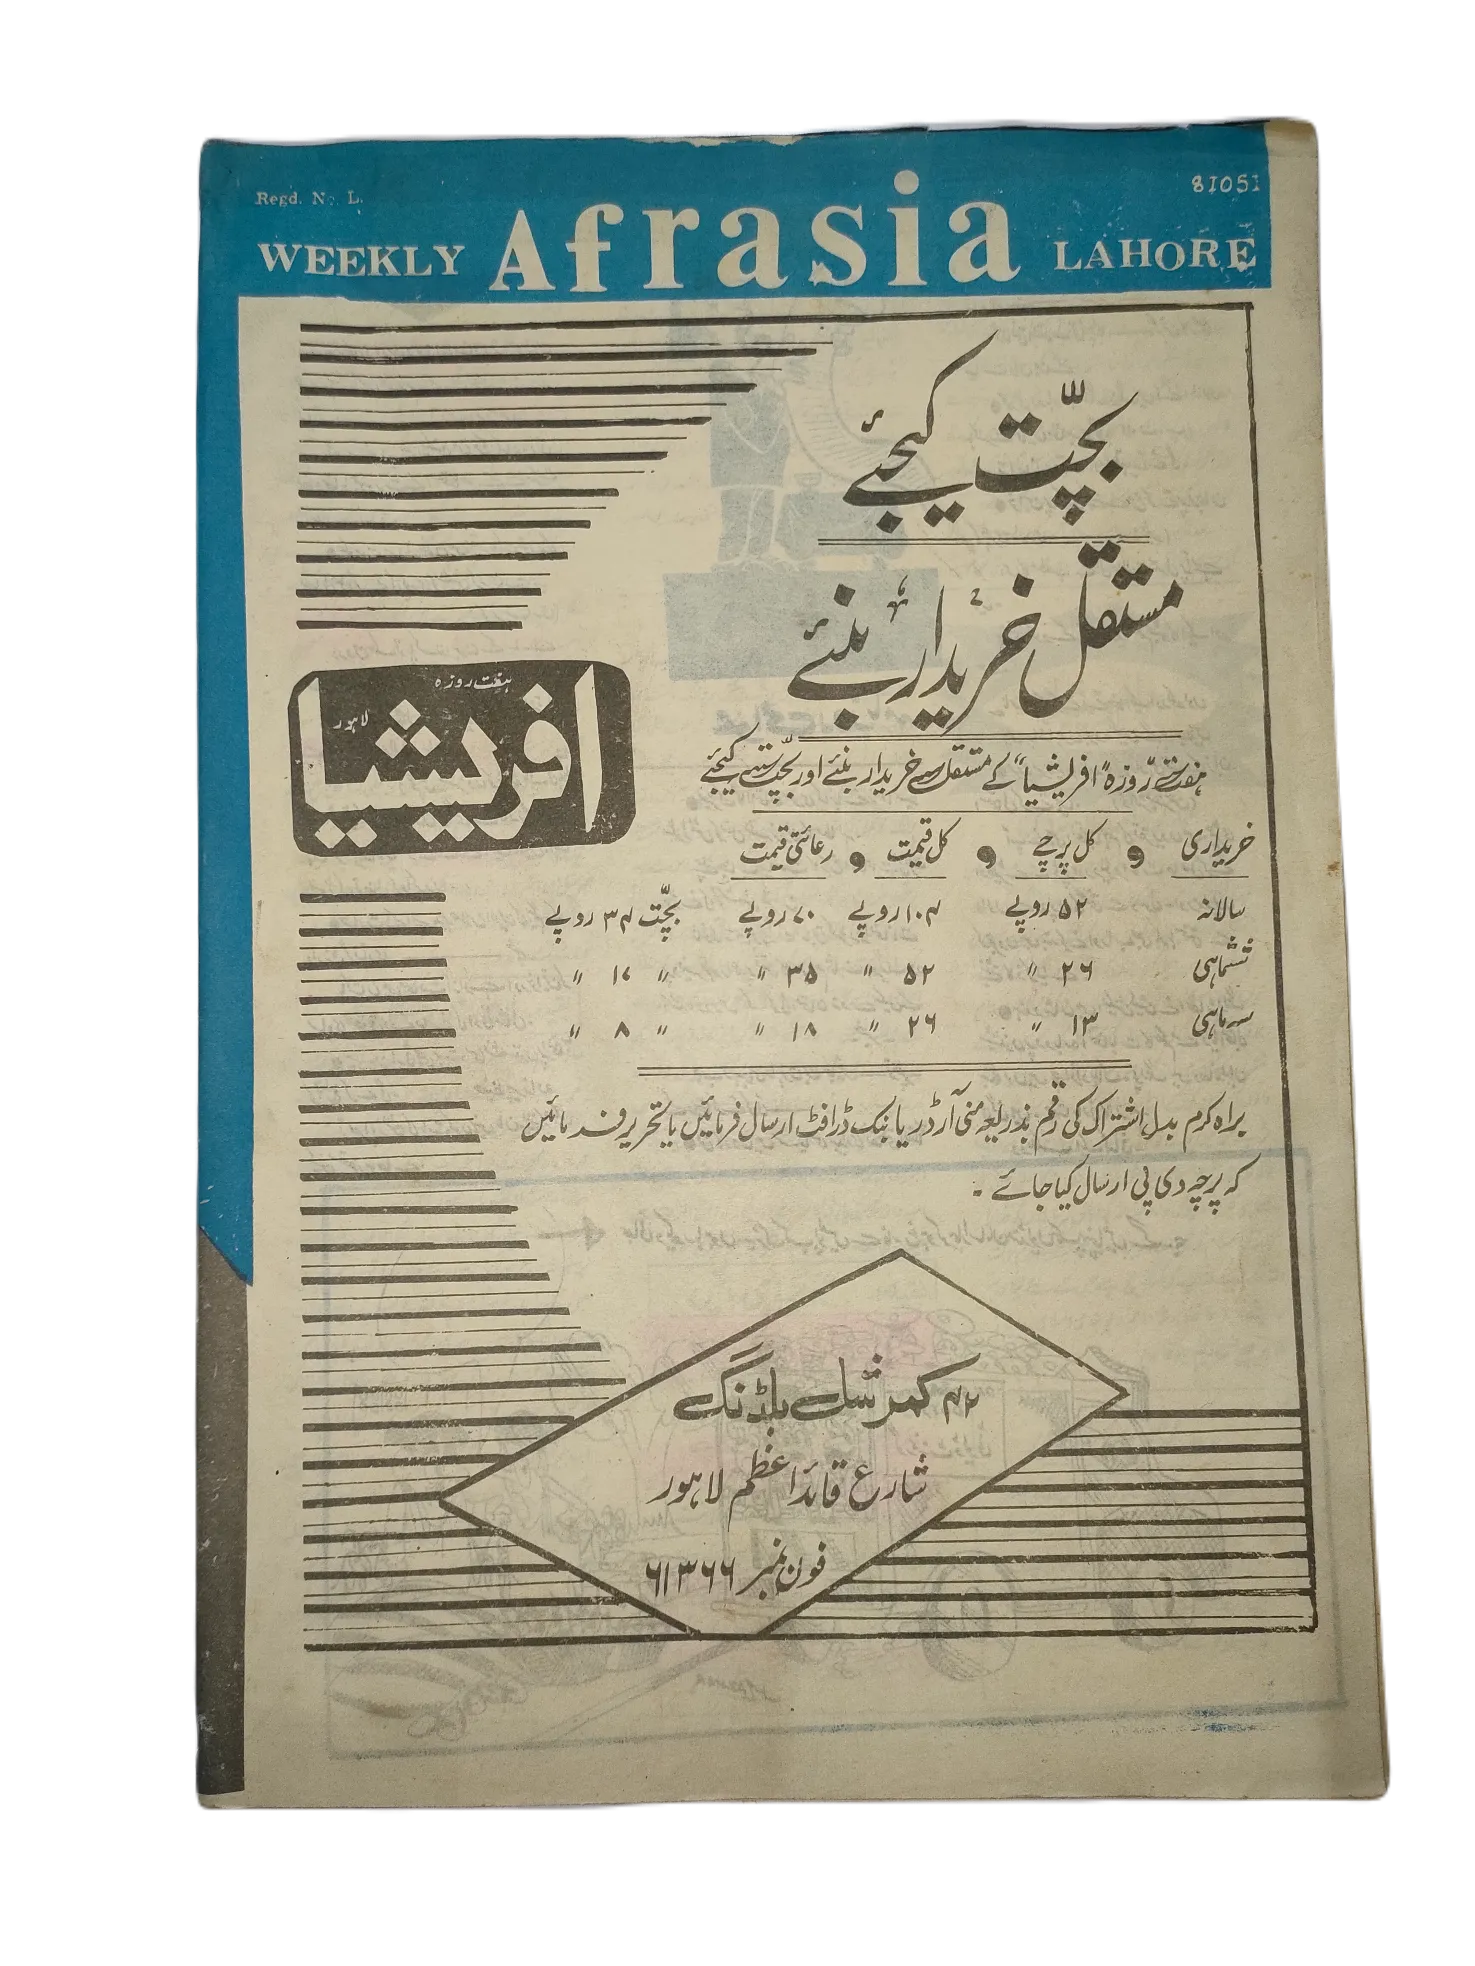 Regd. No. L.
81051
WEEKLY Afrasia LAHORE
بچّت کیجئے
مستقل خریدار بنئے
ہفت روزہ
افریشیا
لاہور
ہفت روزہ "افریشیا" کے مستقل خریدار بنئے اور بچّت کیجئے
خریداری و کل پرچے و کل قیمت و رعائتی قیمت
سالانہ ۵۲ روپے ۱۰۴ روپے ۷۰ روپے بچّت ۳۴ روپے
ششماہی ۲۶ " ۵۲ " ۳۵ " " ۱۷ "
سہ ماہی ۱۳ " ۲۶ " ۱۸ " " ۸ "
براہ کرم بدل اشتراک کی رقم بذریعہ منی آرڈر یا بنک ڈرافٹ ارسال فرمائیں یا تحریر فرمائیں
کہ پرچہ وی پی ارسال کیا جائے ۔
۴۲ کمرشل بلڈنگ
شارع قائداعظم لاہور
فون نمبر ۶۱۳۶۶